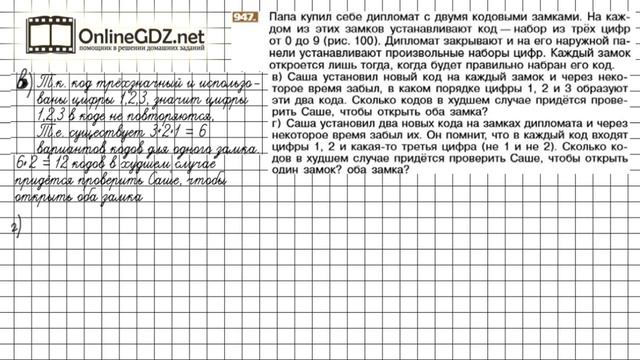 OnlineGDZ.net
помощник в решении домашних заданий
947.
Папа купил себе дипломат с двумя кодовыми замками. На каж-
дом из этих замков устанавливают код — набор из трёх цифр
от 0 до 9 (рис. 100). Дипломат закрывают и на его наружной па-
нели устанавливают произвольные наборы цифр. Каждый замок
откроется лишь тогда, когда будет правильно набран его код.
в) Саша установил новый код на каждый замок и через неко-
торое время забыл, в каком порядке цифры 1, 2 и 3 образуют
эти два кода. Сколько кодов в худшем случае придётся прове-
рить Саше, чтобы открыть оба замка?
г) Саша установил два новых кода на замках дипломата и через
некоторое время забыл их. Он помнит, что в каждый код входят
цифры 1, 2 и какая-то третья цифра (не 1 и не 2). Сколько ко-
дов в худшем случае придётся проверить Саше, чтобы открыть
один замок? оба замка?
в) Т.к. код трёхзначный и использо-
ваны цифры 1,2,3, значит цифры
1,2,3 в коде не повторяются,
Т.е. существует 3·2·1 = 6
вариантов кодов для одного замка.
6·2 = 12 кодов в худшем случае
придётся проверить Саше, чтобы
открыть оба замка
г)